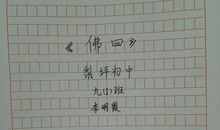 《佛曰》
梨坪初中
九(1)班
李明霞